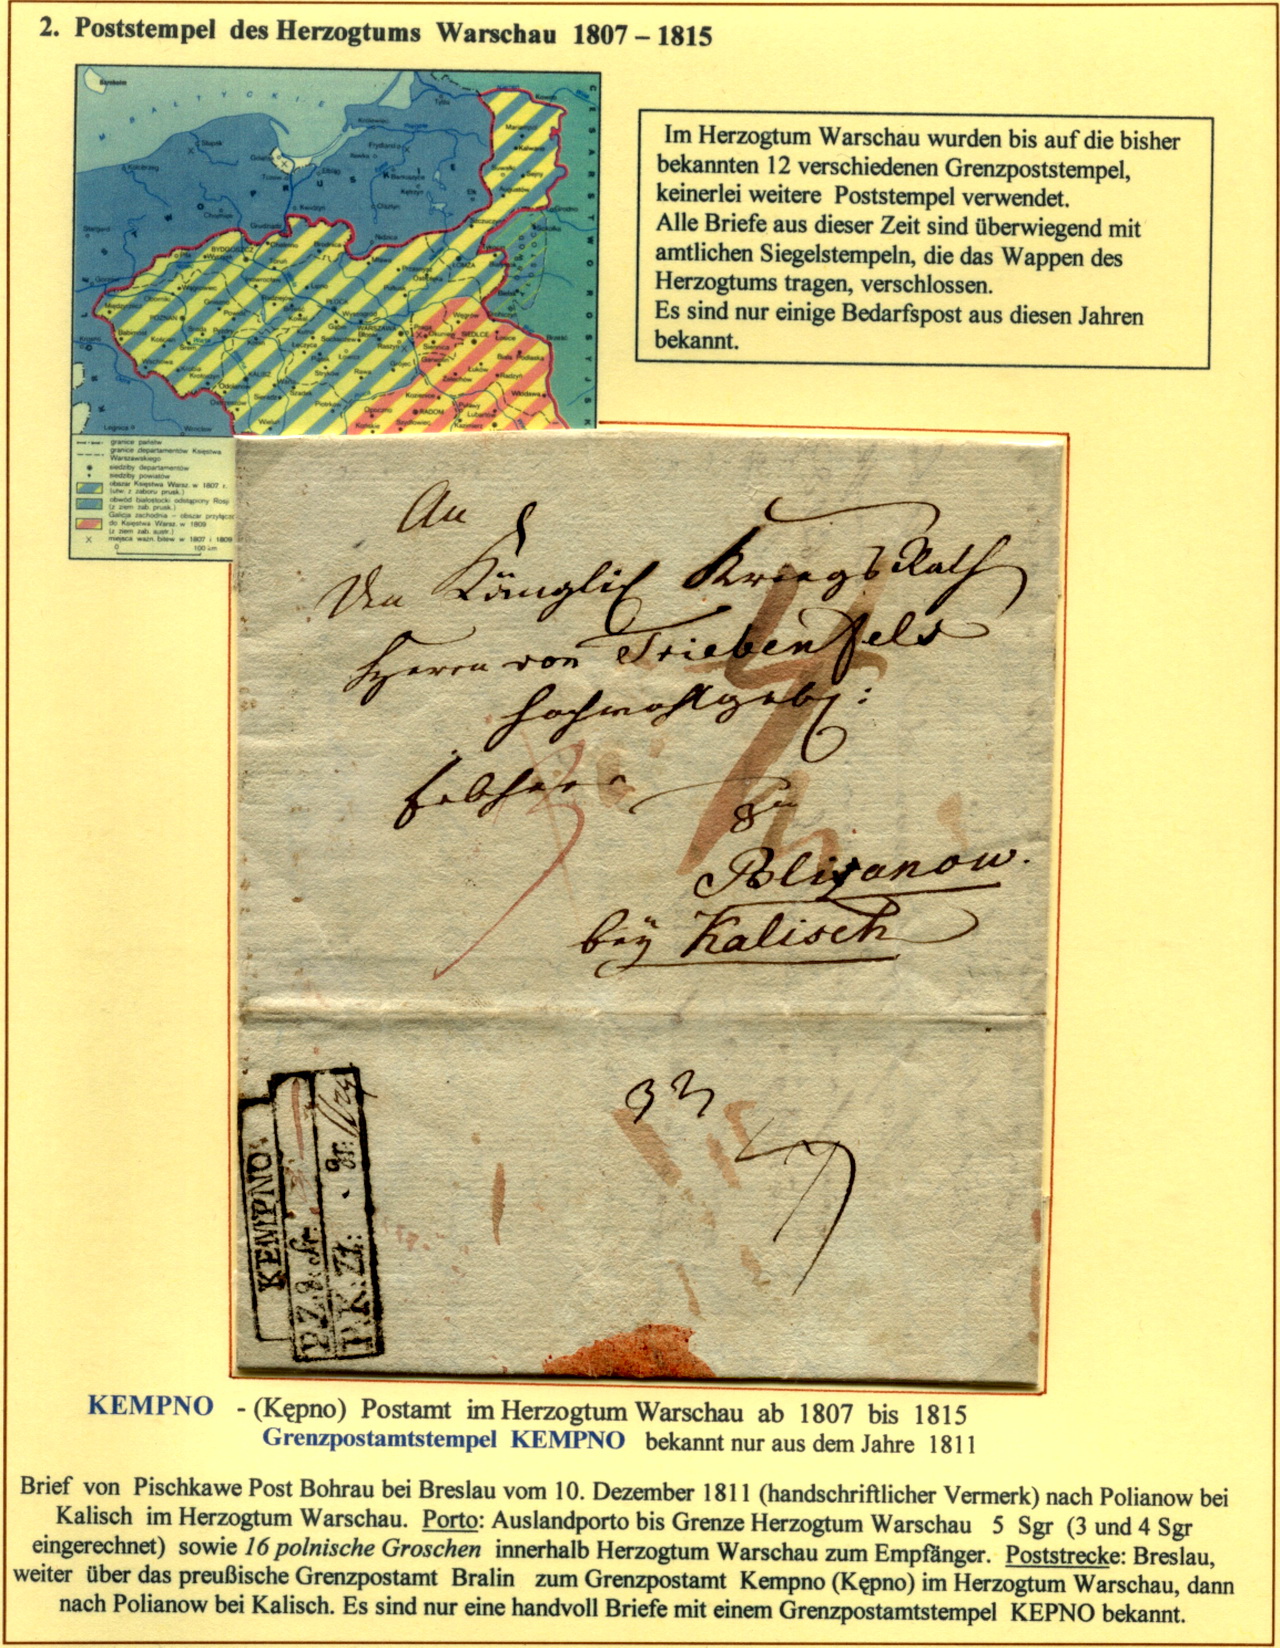 2. Poststempel des Herzogtums Warschau 1807 – 1815
Im Herzogtum Warschau wurden bis auf die bisher
bekannten 12 verschiedenen Grenzpoststempel,
keinerlei weitere Poststempel verwendet.
Alle Briefe aus dieser Zeit sind überwiegend mit
amtlichen Siegelstempeln, die das Wappen des
Herzogtums tragen, verschlossen.
Es sind nur einige Bedarfspost aus diesen Jahren
bekannt.
granice państw
granice departamentów Księstwa
Warszawskiego
siedziby departamentów
siedziby powiatów
obszar Księstwa Warsz. w 1807 r.
(utw. z zaboru prusk.)
obwód białostocki odstąpiony Rosji
(z ziem zab. prusk.)
Galicja zachodnia – obszar przyłącz
do Księstwa Warsz. w 1809
(z ziem zab. austr.)
miejsca ważn. bitew w 1807 i 1809
0 100 km
An
Den Königlich Kriegs Rath
Herrn von Triebenfels
Hochwohlgeb:
zu
Polizanow.
bey Kalisch
KEMPNO
P.K: Zł: gr:
KEMPNO - (Kępno) Postamt im Herzogtum Warschau ab 1807 bis 1815
Grenzpostamtstempel KEMPNO bekannt nur aus dem Jahre 1811
Brief von Pischkawe Post Bohrau bei Breslau vom 10. Dezember 1811 (handschriftlicher Vermerk) nach Polianow bei
Kalisch im Herzogtum Warschau. Porto: Auslandporto bis Grenze Herzogtum Warschau 5 Sgr (3 und 4 Sgr
eingerechnet) sowie 16 polnische Groschen innerhalb Herzogtum Warschau zum Empfänger. Poststrecke: Breslau,
weiter über das preußische Grenzpostamt Bralin zum Grenzpostamt Kempno (Kępno) im Herzogtum Warschau, dann
nach Polianow bei Kalisch. Es sind nur eine handvoll Briefe mit einem Grenzpostamtstempel KEPNO bekannt.